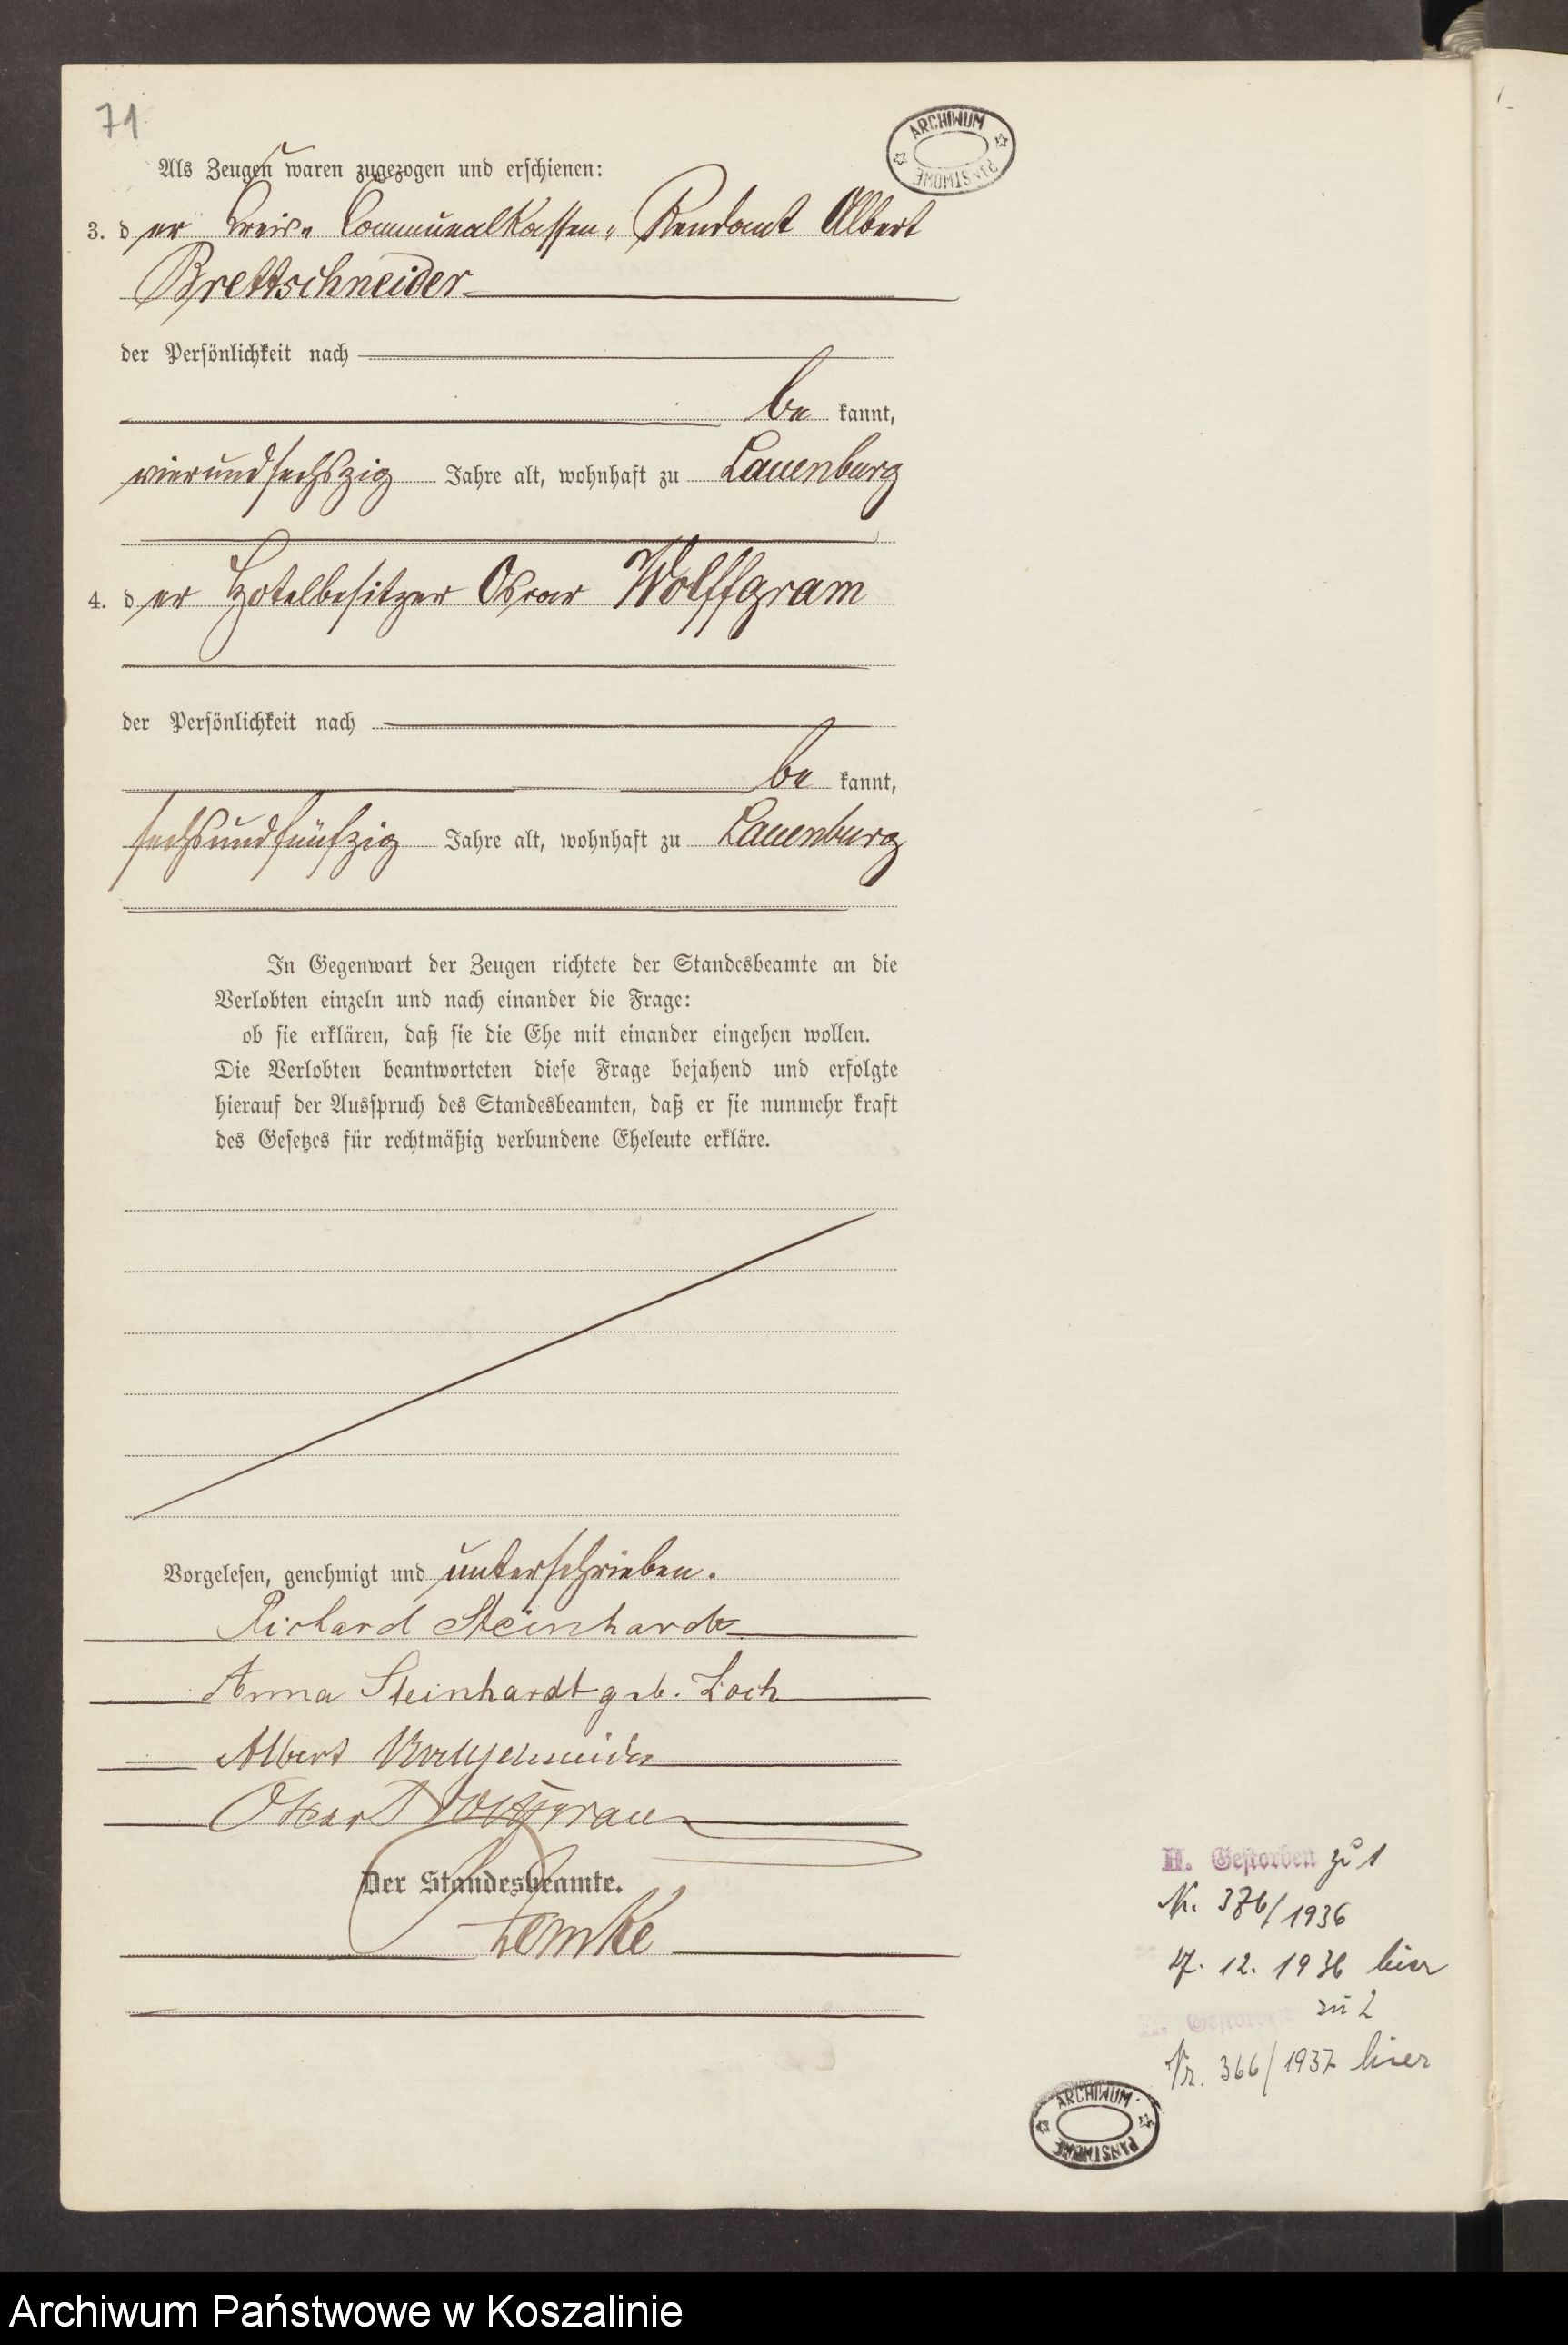 71
ARCHIWUM PAŃSTWOWE
Als Zeugen waren zugezogen und erschienen:
3. der Kreis- Communalkassen- Rendant Albert
Brettschneider
der Persönlichkeit nach
be kannt,
vierundsechszig Jahre alt, wohnhaft zu Lauenburg
4. der Hotelbesitzer Oscar Wolffgram
der Persönlichkeit nach
be kannt,
sechsundfünfzig Jahre alt, wohnhaft zu Lauenburg
In Gegenwart der Zeugen richtete der Standesbeamte an die
Verlobten einzeln und nach einander die Frage:
ob sie erklären, daß sie die Ehe mit einander eingehen wollen.
Die Verlobten beantworteten diese Frage bejahend und erfolgte
hierauf der Ausspruch des Standesbeamten, daß er sie nunmehr kraft
des Gesetzes für rechtmäßig verbundene Eheleute erkläre.
Vorgelesen, genehmigt und unterschrieben.
Richard Steinhardt
Anna Steinhardt geb. Loch
Albert Brettschneider
Oskar Wolffgram
Der Standesbeamte.
Lemke
H. Gestorben zu 1
Nr. 376/1936
27. 12. 1936 hier
H. Gestorben zu 2
Nr. 366/1937 hier
ARCHIWUM PAŃSTWOWE
Archiwum Państwowe w Koszalinie